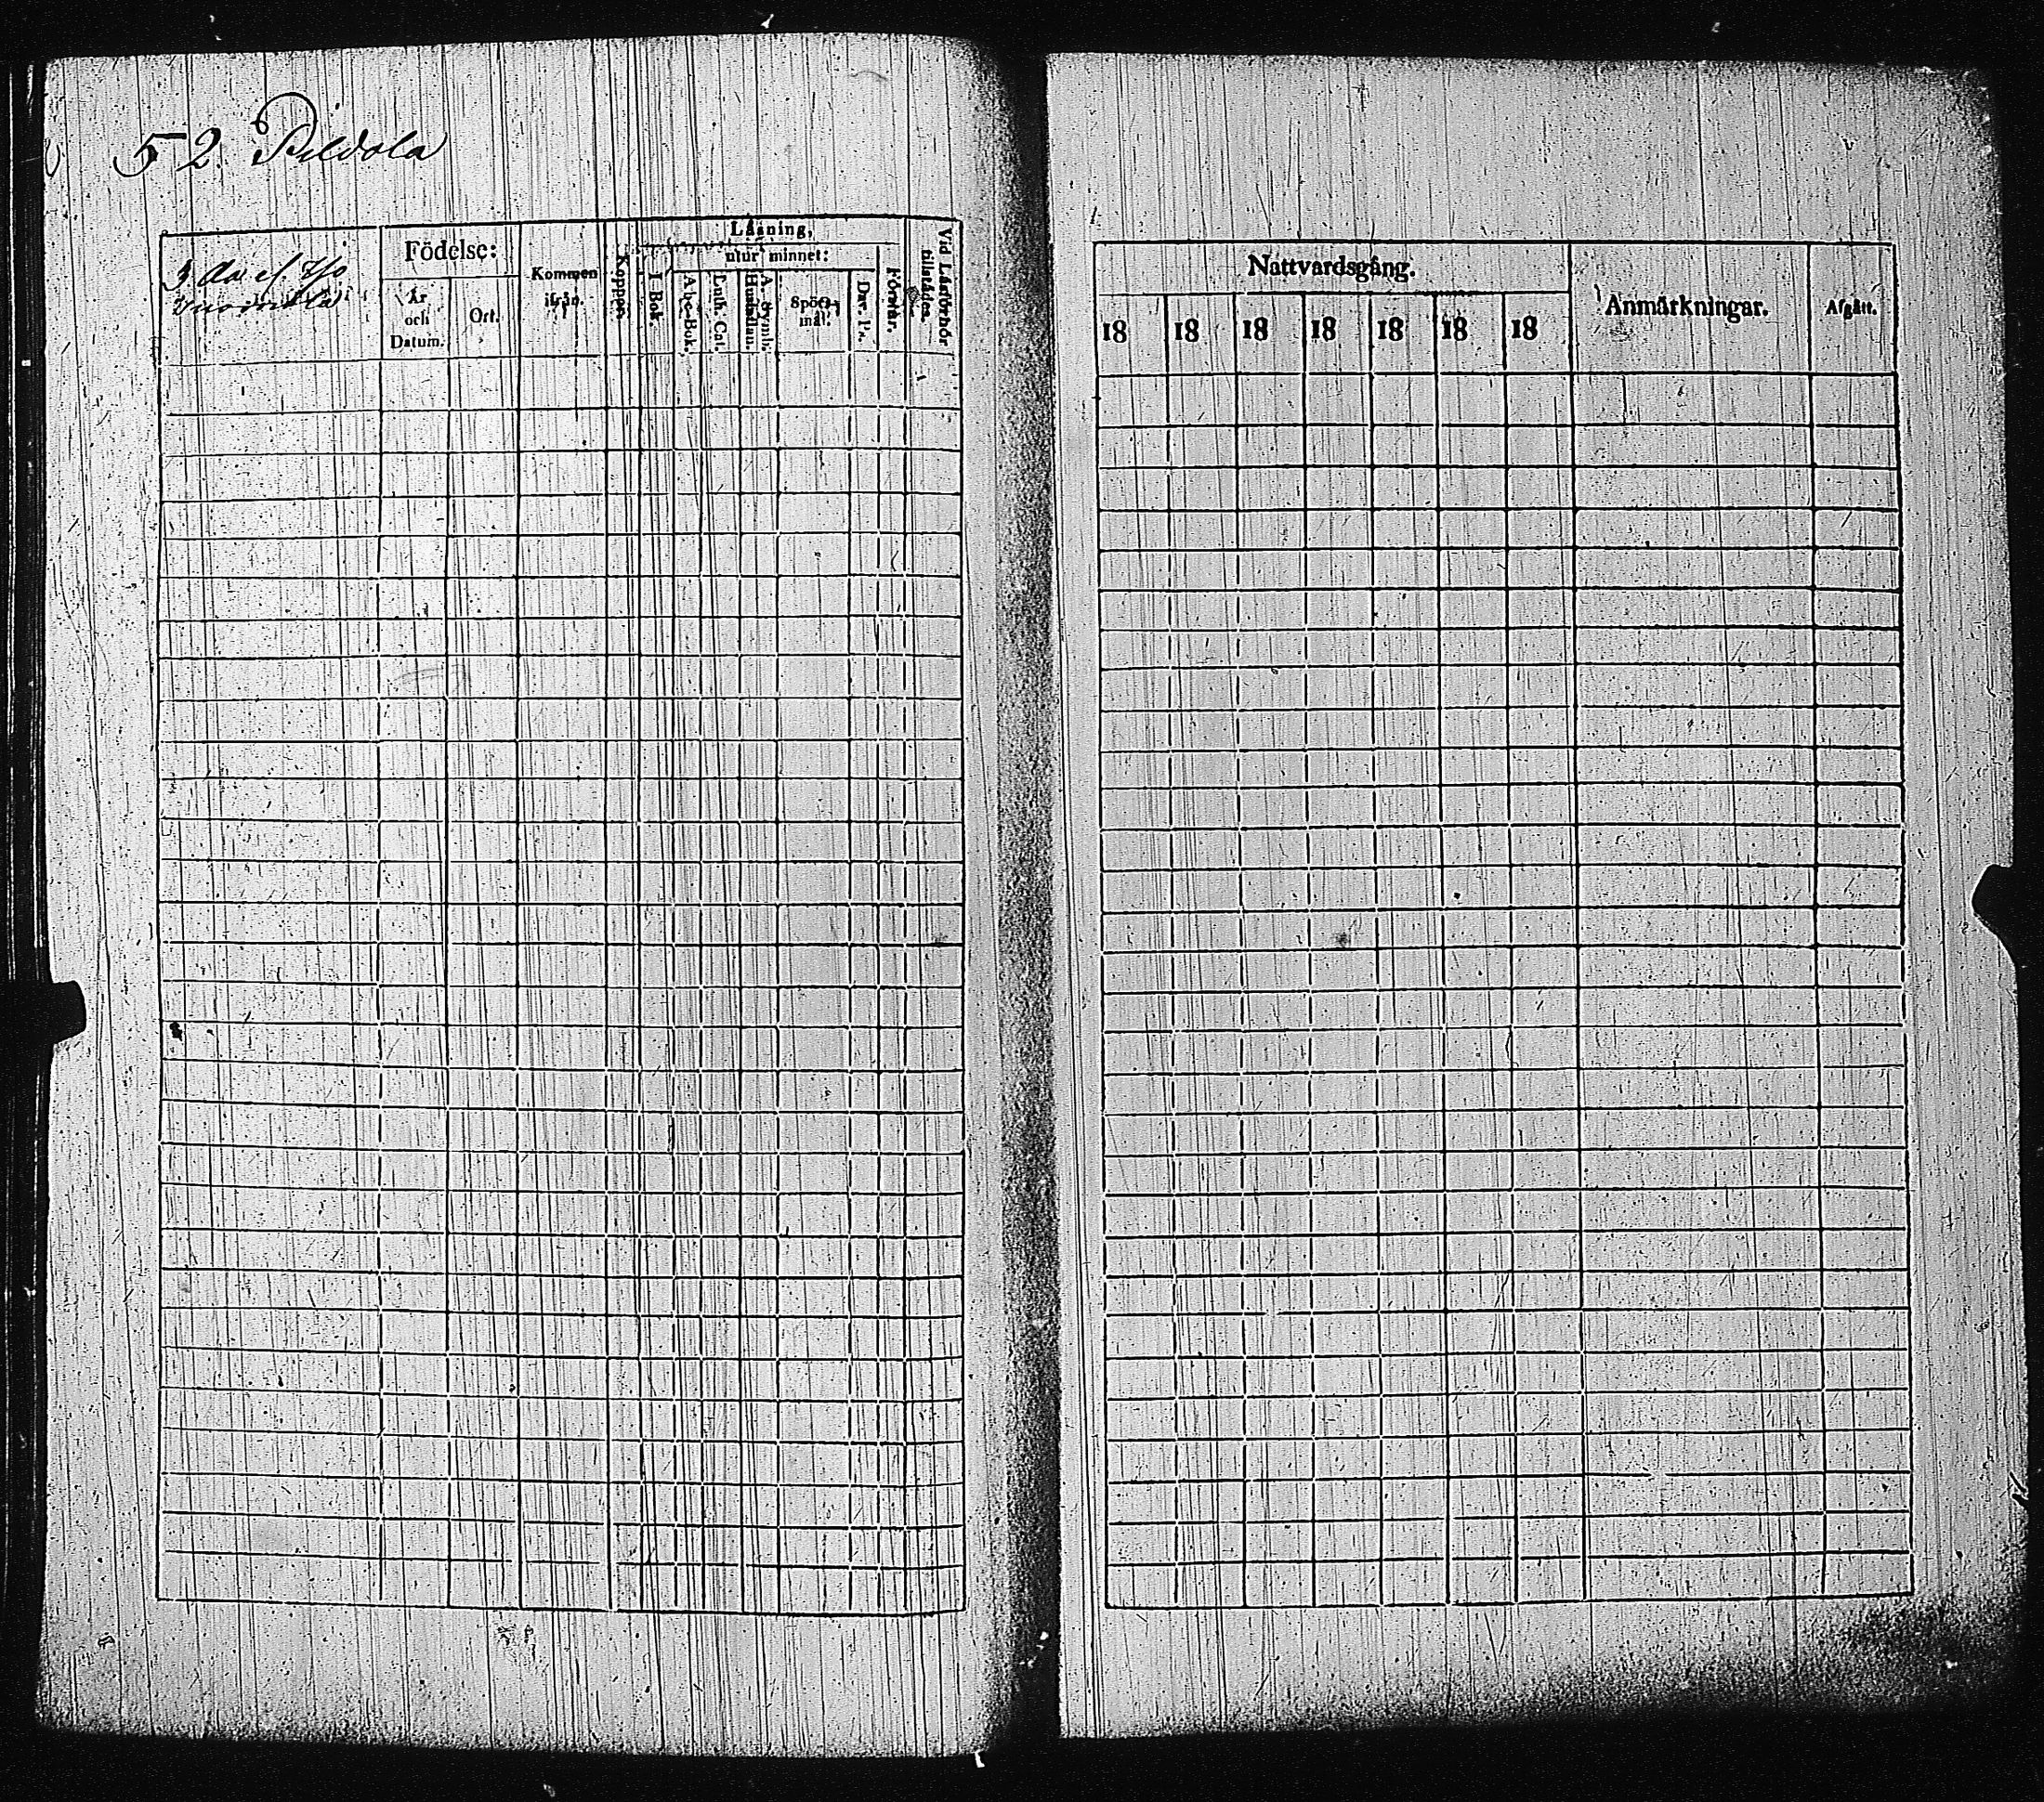 52. Pildola
Födelse:
År och Datum.
Ort.
Kommen ifrån.
Koppor.
Läsning,
I Bok.
utur minnet:
Abc-Bok.
Luth. Cat.
Spörsmål.
Dav. Ps.
Förstår.
Vid Läsförhör tillstädes.
Nattvardsgång.
18 18 18 18 18 18 18
Anmärkningar.
Afgått.